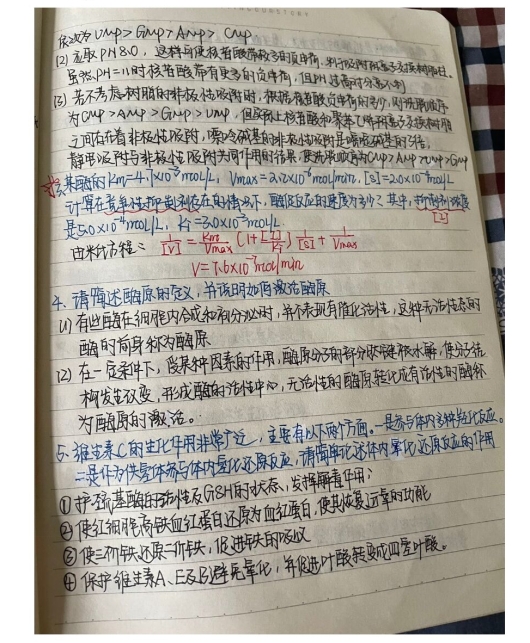 依次为 UMP > GMP > AMP > CMP
(2) 应取 pH 8.0，这样可使核苷酸带较多的负电荷，利于吸附于离子交换树脂柱。
虽然 pH=11时核苷酸带有更多的负电荷，但pH过高对分离不利
(3) 若不考虑树脂的非极性吸附时，根据核苷酸负电荷的多少，则洗脱顺序
为CMP>AMP>GMP>UMP，但实际上核苷酸和聚苯乙烯阴离子交换树脂
之间存在着非极性吸附，嘌呤碱基的非极性吸附是嘧啶碱基的3倍。
静电吸附与非极性吸附共同作用的结果，使洗脱顺序为CMP>AMP>UMP>GMP
某酶的 Km=4.7×10⁻⁵mol/L，Vmax=2.2×10⁻⁶mol/min，[S]=2.0×10⁻⁴mol/L
计算在竞争性抑制剂存在的情况下，酶促反应的速度为多少？其中，抑制剂浓度
[I]
是5.0×10⁻⁴mol/L，Ki=3.0×10⁻⁴mol/L
由米氏方程：1/[V] = Km/Vmax (1+[I]/Ki) 1/[S] + 1/Vmax
V=7.6×10⁻⁷mol/min
4. 请简述酶原的定义，并说明如何激活酶原
(1) 有些酶在细胞内合成和初分泌时，并不表现有催化活性，这种无活性状态的
酶的前身称为酶原
(2) 在一定条件下，受某种因素的作用，酶原分子的部分肽键被水解，使分子结
构发生改变，形成酶的活性中心，无活性的酶原转化成有活性的酶称
为酶原的激活。
5. 维生素C的生化作用非常广泛，主要有以下两个方面。一是参与体内多种羟化反应。
二是作为供氢体参与体内氧化还原反应，请简单论述体内氧化还原反应的作用
① 护巯基酶的活性及GSH的状态，发挥解毒作用；
② 使红细胞高铁血红蛋白还原为血红蛋白，使其恢复运氧的功能
③ 使三价铁还原二价铁，促进铁的吸收
④ 保护维生素A、E及B避免氧化，并促进叶酸转变成四氢叶酸。